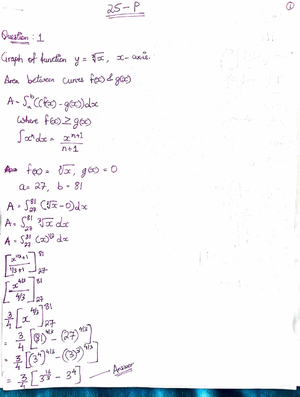 25-P
①
Question: 1
Graph of function y = ∛x, x-axis.
Area between curves f(x) & g(x)
A = ∫ₐᵇ (f(x) - g(x)) dx
where f(x) ≥ g(x)
∫xⁿdx = xⁿ⁺¹/n+1
f(x) = ∛x, g(x) = 0
a = 27, b = 81
A = ∫₂₇⁸¹ (∛x - 0) dx
A = ∫₂₇⁸¹ ∛x dx
A = ∫₂₇⁸¹ (x)^1/3 dx
[x^1/3+1 / 1/3+1]₂₇⁸¹
[x^4/3 / 4/3]₂₇⁸¹
3/4 [x^4/3]₂₇⁸¹
= 3/4 [(81)^4/3 - (27)^4/3]
= 3/4 [(3⁴)^4/3 - ((3)³)^4/3]
= 3/4 [3^16/3 - 3⁴] → Answer